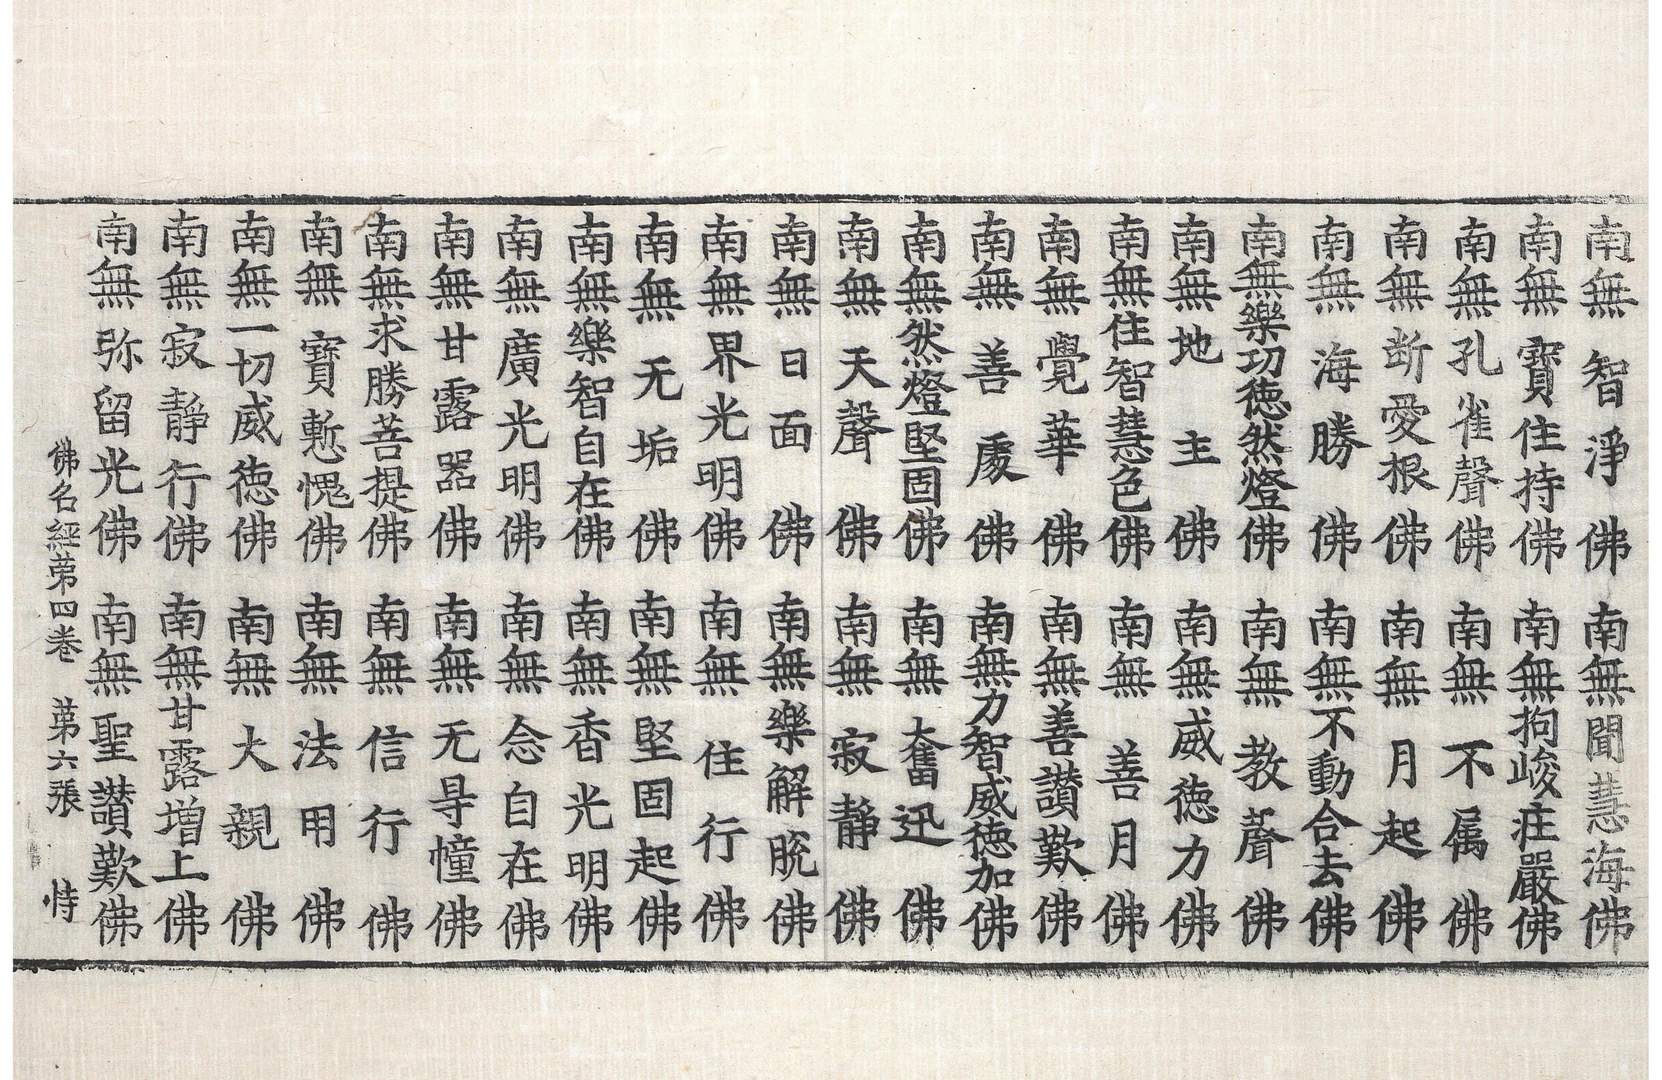 南無智淨佛　南無聞慧海佛
南無寶住持佛　南無拘峻庄嚴佛
南無孔雀聲佛　南無不属佛
南無断愛根佛　南無月起佛
南無海勝佛　南無不動合去佛
南無樂功徳然燈佛　南無教聲佛
南無地主佛　南無威徳力佛
南無住智慧色佛　南無善月佛
南無覺華佛　南無善讃歎佛
南無善處佛　南無力智威徳加佛
南無然燈堅固佛　南無奮迅佛
南無天聲佛　南無寂静佛
南無日面佛　南無樂解脱佛
南無界光明佛　南無住行佛
南無无垢佛　南無堅固起佛
南無樂智自在佛　南無香光明佛
南無廣光明佛　南無念自在佛
南無甘露器佛　南無无㝵幢佛
南無求勝菩提佛　南無信行佛
南無寶慙愧佛　南無法用佛
南無一切威徳佛　南無大親佛
南無寂静行佛　南無甘露増上佛
南無弥留光佛　南無聖讃歎佛
佛名經苐四巻　苐六張　恃